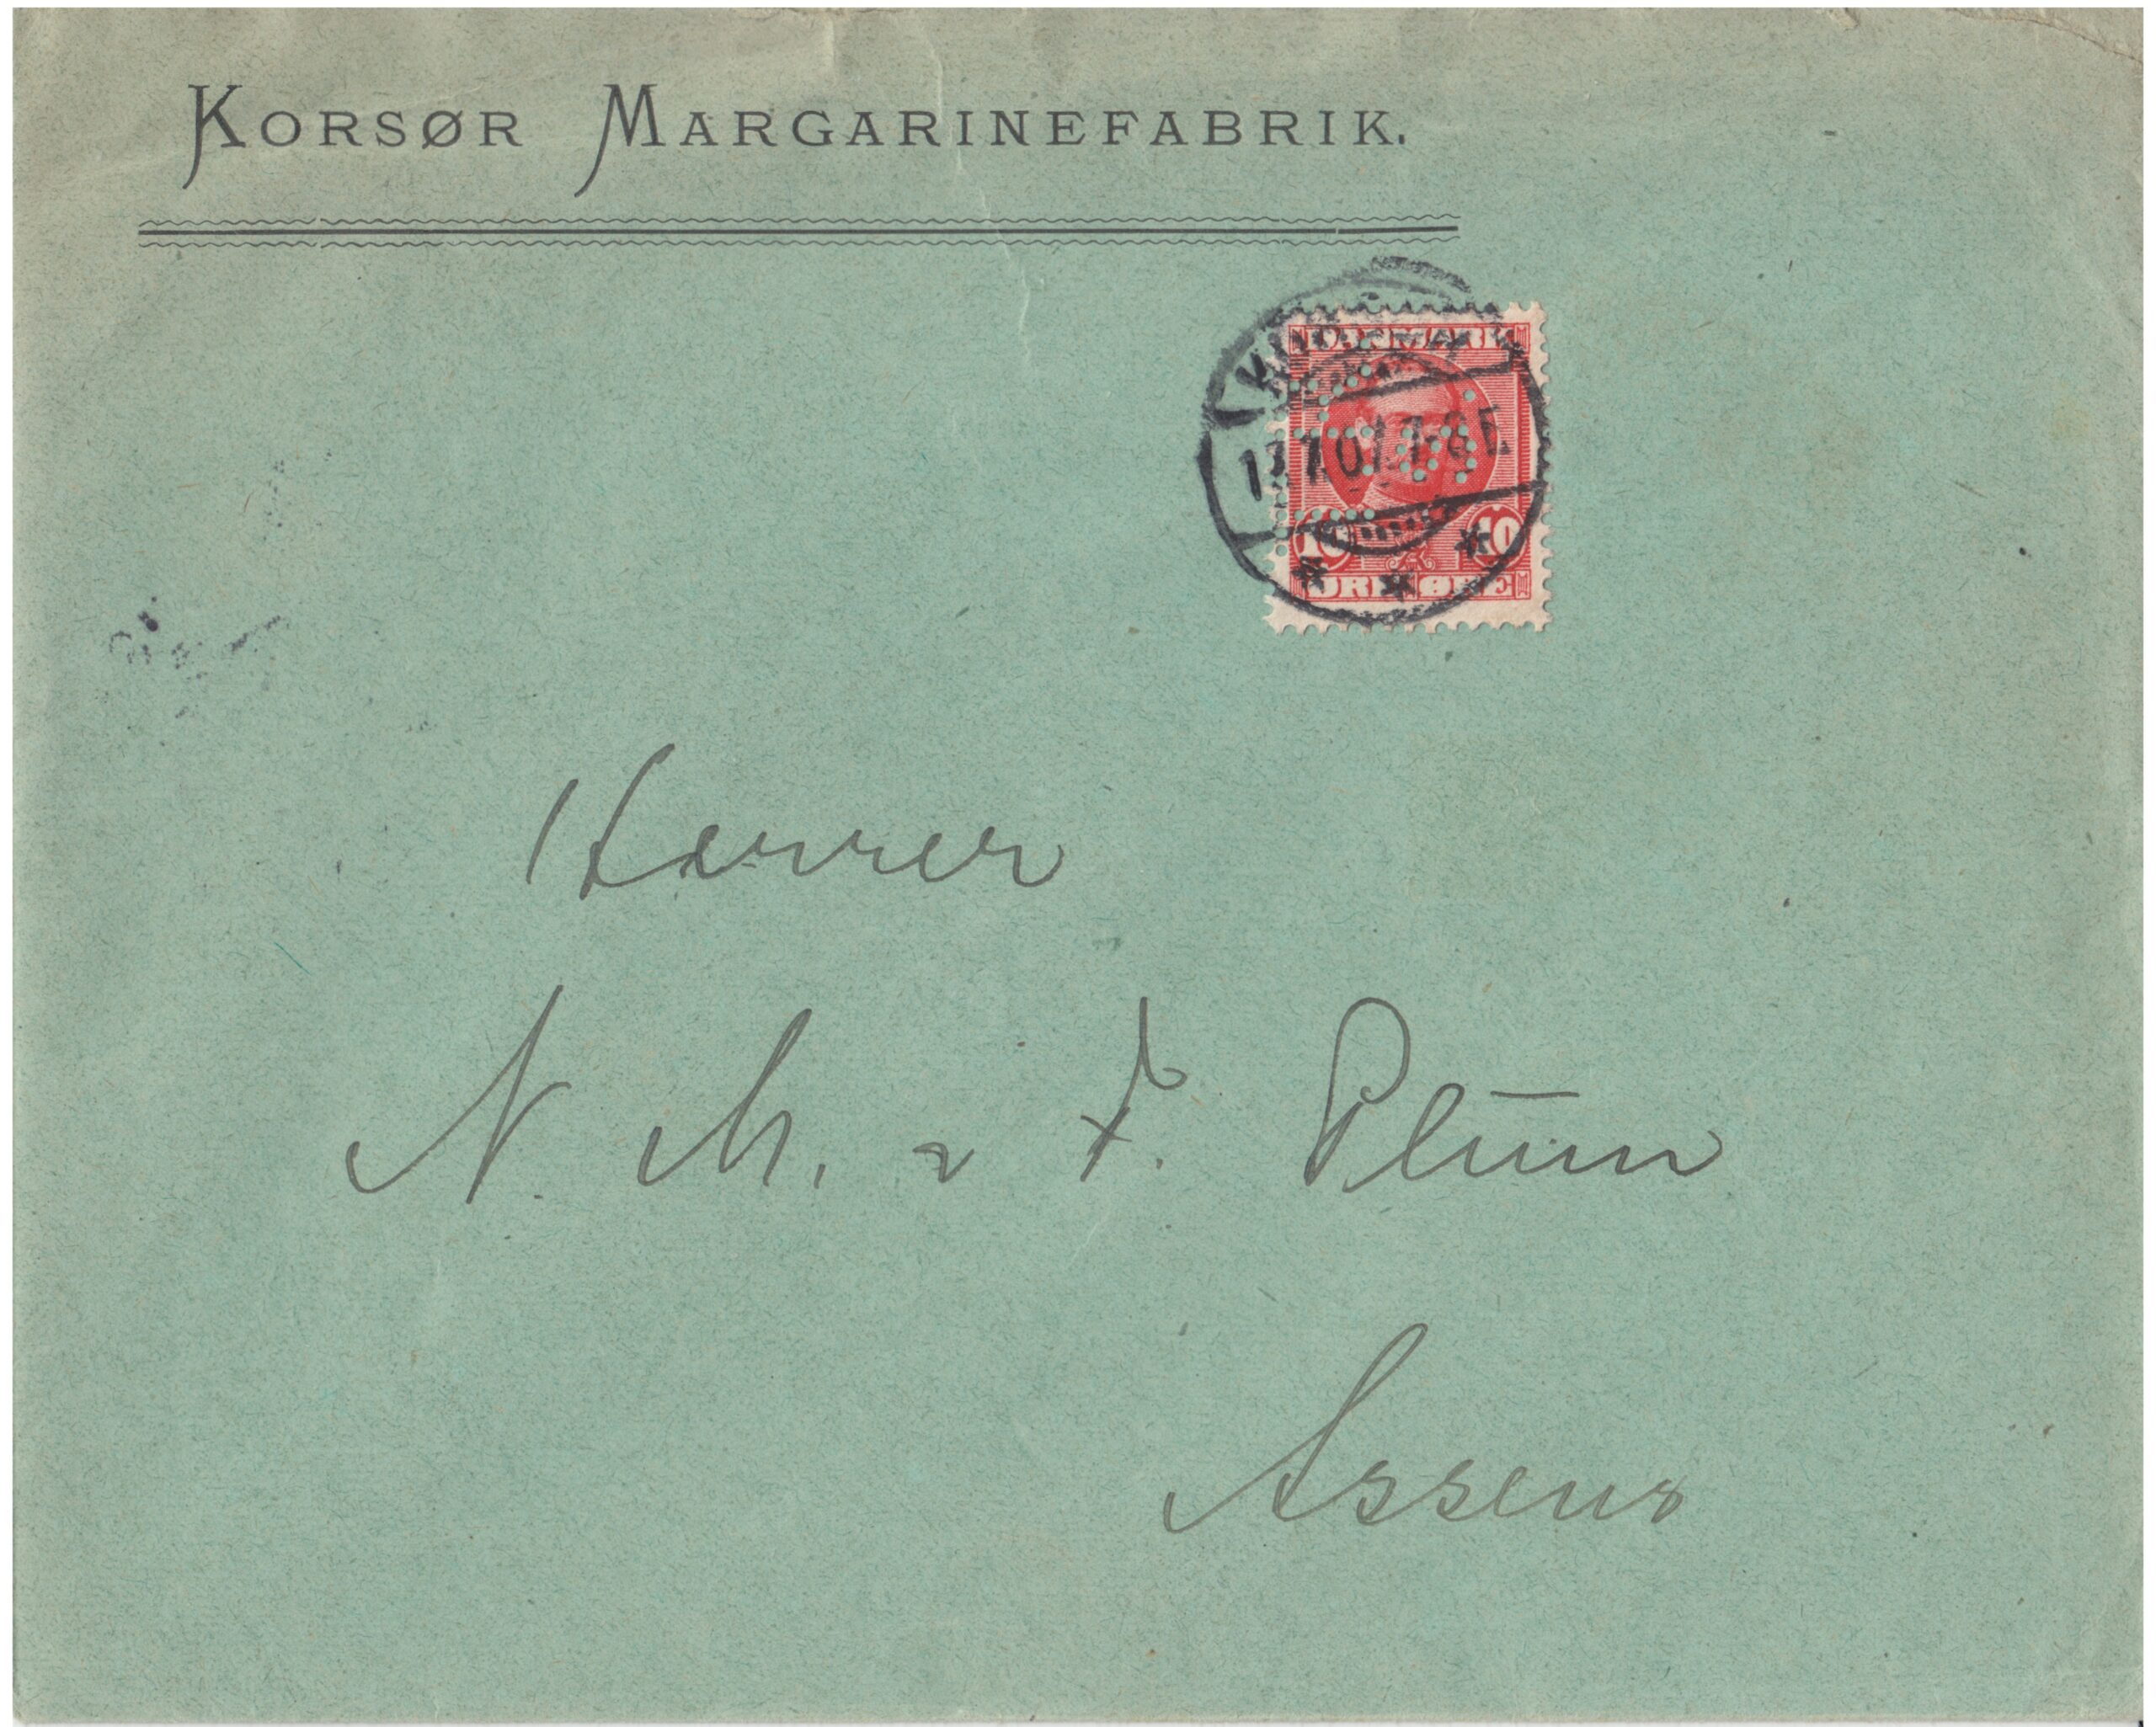 KORSØR MARGARINEFABRIK.
DANMARK
7-8E
10 10
ØRE ØRE
Herrer
N. M. & F. Plum
Assens